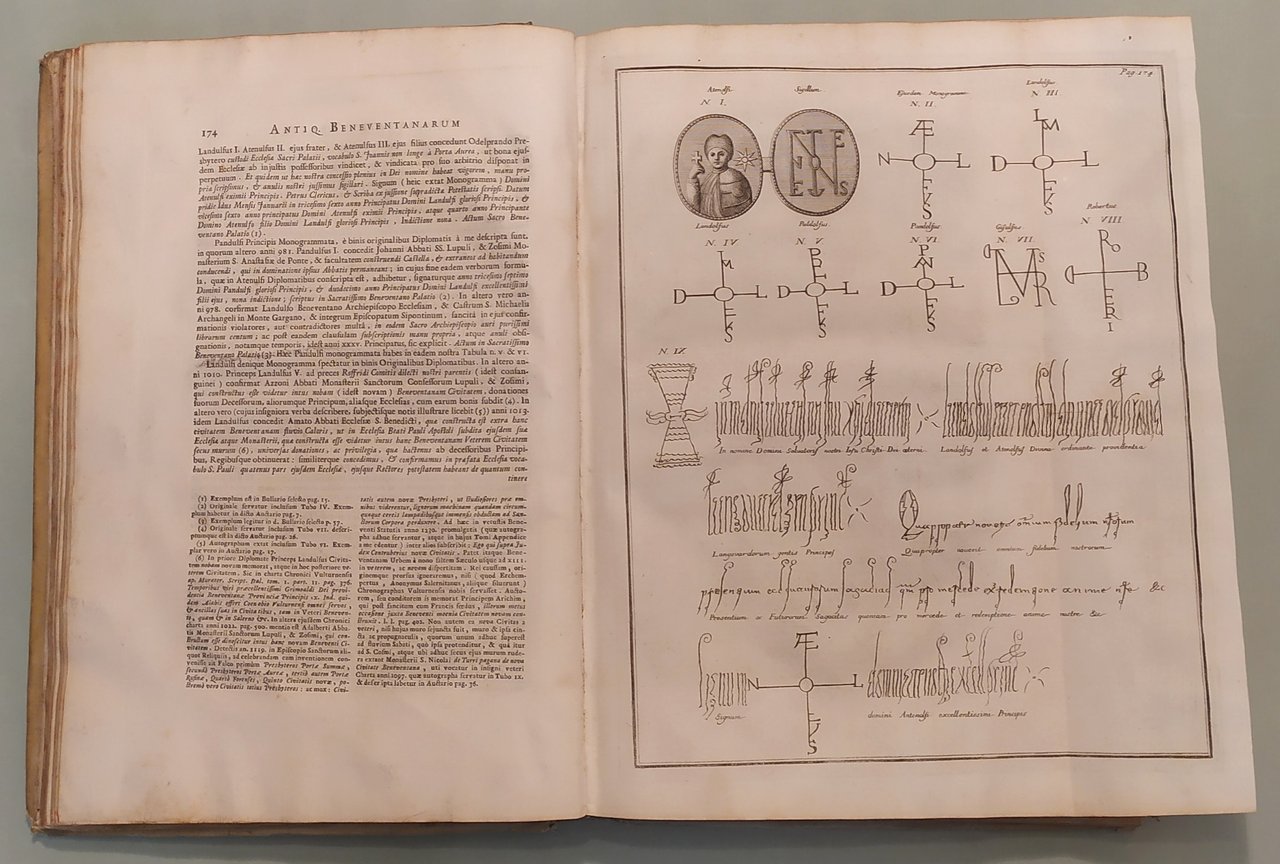 174 ANTIQ. BENEVENTANARUM
Landulfus I. Atenulfus II. ejus frater, & Atenulfus III. ejus filius concedunt Odelprando Pre-
sbytero custodi Ecclesiæ Sacri Palatii, vocabulo S. Joannis non longè à Porta Aurea, ut bona ejus-
dem Ecclesiæ ab injustis possessoribus vindicet, & vindicata pro suo arbitrio disponat in
perpetuum. Et quidem ut hæc nostra concessio plenius in Dei nomine habeat vigorem, manu pro-
pria scripsimus, & anuli nostri jussimus sigillari. Signum (heic extat Monogramma) Domini
Atenulfi eximii Principis. Petrus Clericus, & Scriba ex jussione supradictæ Potestatis scripsi. Datum
pridie Idus Mensis Januarii in tricesimo sexto anno Principatus Domini Landulfi gloriosi Principis, &
vicesimo sexto anno principatus Domini Atenulfi eximii Principis, atque quarto anno Principante
Domino Atenulfo filio Domini Landulfi gloriosi Principis, Indictione nona. Actum Sacro Bene-
ventano Palatio (1).
Pandulfi Principis Monogrammata, è binis originalibus Diplomatis à me descripta sunt.
in quorum altero anni 981. Pandulfus I. concedit Johanni Abbati SS. Lupuli, & Zosimi Mo-
nasterium S. Anastasiæ de Ponte, & facultatem construendi Castella, & extraneos ad habitandum
conducendi, qui in dominatione ipsius Abbatis permaneant; in cujus fine eadem verborum formu-
la, quæ in Atenulfi Diplomatibus conscripta est, adhibetur, signaturque anno tricesimo septimo
Domini Pandulfi gloriosi Principis, & duodecimo anno Principatus Domini Landulfi excellentissimi
filii ejus, nona indictione; scriptus in Sacratissimo Beneventano Palatio (2). In altero vero an-
ni 978. confirmat Landulfo Beneventano Archiepiscopo Ecclesiam, & Castrum S. Michaelis
Archangeli in Monte Gargano, & integrum Episcopatum Sipontinum, sancita in ejus confir-
mationis violatores, aut contradictores multa, in eodem Sacro Archiepiscopio auri purissimi
librarum centum; ac post eandem clausulam subscriptionis manu propria, atque anuli obsi-
gnationis, notamque temporis, idest anni xxxv. Principatus, sic explicit. Actum in Sacratissimo
Beneventano Palatio (3). Hæc Pandulfi monogrammata habes in eadem nostra Tabula n. v. & vi.
Landulfi denique Monogramma spectatur in binis Originalibus Diplomatibus. In altero an-
ni 1010. Princeps Landulfus V. ad preces Roffridi Comitis dilecti nostri parentis (idest consan-
guinei) confirmat Azzoni Abbati Monasterii Sanctorum Confessorum Lupuli, & Zosimi,
qui constructus esse videtur intus nobam (idest novam) Beneventanam Civitatem, donationes
suorum Decessorum, aliorumque Principum, aliasque Ecclesias, cum earum bonis subdit (4). In
altero vero (cujus insigniora verba describere, subjectisque notis illustrare licebit (5)) anni 1013.
idem Landulfus concedit Amato Abbati Ecclesiæ S. Benedicti, quæ constructa est extra hanc
civitatem Beneventanam fluvio Caloris, ut in Ecclesia Beati Pauli Apostoli subdita ejusdem suæ
Ecclesiæ atque Monasterii, quæ constructa esse videtur intus hanc Beneventanam Veterem Civitatem
secus murum (6), universas donationes, ac privilegia, quæ hactenus ab decessoribus Principi-
bus, Regibusque obtinuerat: similiterque concedimus, & confirmamus in præfata Ecclesia voca-
bulo S. Pauli quatenus pars ejusdem Ecclesiæ, ejusque Rectores potestatem habeant de quantum con-
tinere
(1) Exemplum est in Bullario selecto pag. 15.
(2) Originale servatur inclusum Tubo IV. Exem-
plum habetur in dicto Auctario pag. 7.
(3) Exemplum legitur in d. Bullario selecto p. 57.
(4) Originale servatur inclusum Tubo VII. descri-
ptumque est in dicto Auctario pag. 26.
(5) Autographum extat inclusum Tubo VI. Exem-
plar vero in Auctario pag. 17.
(6) In priore Diplomate Princeps Landulfus Civita-
tem nobam novam memorat, atque in hoc posteriore ve-
terem Civitatem. Sic in charta Chronici Vulturnensis
ap. Murator. Script. Ital. tom. 1. part. 11. pag. 376.
Temporibus viri præcellentissimi Grimoaldi Dei provi-
dentia Beneventanæ Provinciæ Principis
& ancillas suas in Civitatibus, tam in Veteri Beneven-
to, quam & in Salerno &c. In altera ejusdem Chronici
charta anni 1022. pag. 500. mentio est Adalberti Abba-
tis Monasterii Sanctorum Lupuli, & Zosimi, qui con-
structum esse dinoscitur intus hanc novam Beneventi Ci-
vitatem. Detectis an. 1119. in Episcopio Sanctorum ali-
quot Reliquiis, ad celebrandam eam inventionem con-
venisse ait Falco primùm Presbyteros Portæ Summæ,
secundò Presbyteros Portæ Aureæ, tertiò autem Portæ
Rufinæ, Quartò Forenses, Quintò Civitatis novæ, po-
stremò verò Civitatis totius Presbyteros: ac mox: Civi-
tatis autem novæ Presbyteri, ut studiosiores præ om-
nibus viderentur, lignorum machinam quandam circum-
quaque cereis lampadibusque immensis obductam ad San-
ctorum Corpora perduxere. Ad hæc in vetustis Bene-
venti Statutis anno 1230. promulgatis (quæ autogra-
pha adhuc servantur, atque in hujus Tomi Appendice
à me edentur) inter alios subscribit: Ego qui supra Ju-
dex Contrubertus novæ Civitatis. Patet itaque Bene-
ventanam Urbem à nono saltem Sæculo usque ad XIII.
in veterem, ac novam dispertitam. Rei caussam, ori-
ginemque prorsus ignoraremus, nisi (quod Erchem-
pertus, Anonymus Salernitanus, aliique siluerunt)
Chronographus Vulturnensis nobis servasset. Aucto-
rem, seu conditorem is memorat Principem Arichim,
qui post sancitum cum Francis fœdus, illorum metus
occasione juxta Beneventi moenia Civitatem novam con-
struxit. l. l. pag. 402. Non autem ea nova Civitas à
veteri, nisi hujus muro sejuncta fuit, muro & ipsa cin-
cta ac propugnaculis, quorum unum adhuc superest
ad fluvium Sabati, quo ipsa protenditur, & quâ itur
ad S. Cosmi, atque ubi adhuc secus ejus murum rude-
ra extant Monasterii S. Nicolai de Turri pagana de nova
Civitate Beneventana, uti vocatur in insigni veteri
Charta anni 1097. quæ autographa servatur in Tubo IX.
& descripta habetur in Auctario pag. 36.
Pag. 174
Atenulfi Sigillum
N. I.
Ejusdem Monogramma
N. II.
Landolfus
N. III
Landolfus
N. IV
Paldolfus
N. V.
Pandolfus
N. VI.
Gisulfus
N. VII.
Robertus
N. VIII
N. IX
In nomine Domini Salvatoris nostri Iesu Christi Dei æterni. Landolfus et Atenolfus Divina ordinante providentia
Langovardorum gentis Principes
Quapropter noverit omnium fidelium nostrorum
Presentium ac Futurorum Sagacitas quoniam pro mercede et redemptione anime nostre &c
Signum domini Atenolfi excellentissimi Principis